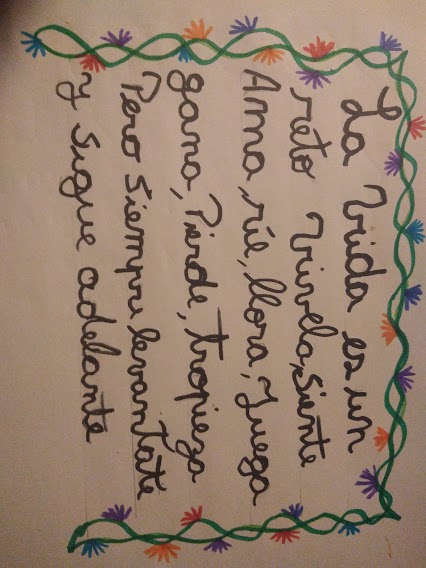 La Vida es un
reto Vivela, siente
Ama, ríe, llora, Juega
gana, Pierde, Tropieza
Pero siempre levantate
y sigue adelante